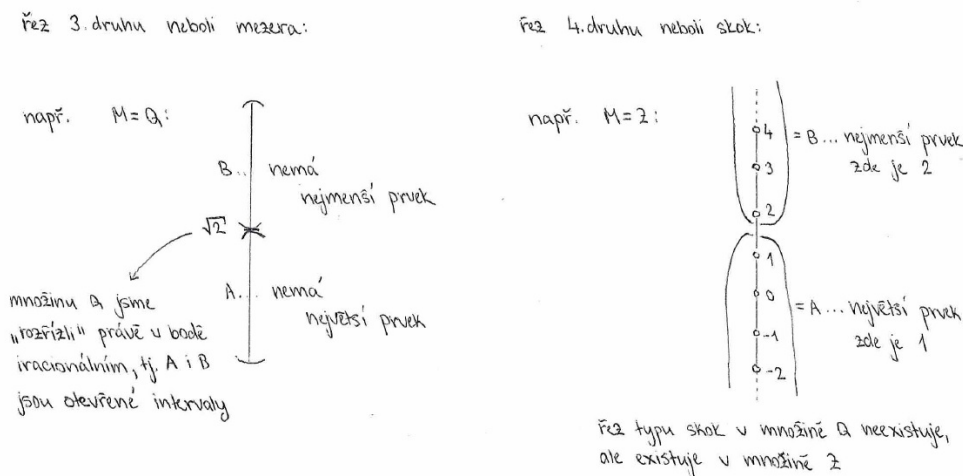 řez 3. druhu neboli mezera:
např. M = Q:
B... nemá
nejmenší prvek
√2
A... nemá
největší prvek
množinu Q jsme
„rozřízli“ právě v bodě
iracionálním, tj. A i B
jsou otevřené intervaly
řez 4. druhu neboli skok:
např. M = Z:
4
= B... nejmenší prvek
zde je 2
3
2
1
0
= A... největší prvek
zde je 1
-1
-2
řez typu skok v množině Q neexistuje,
ale existuje v množině Z